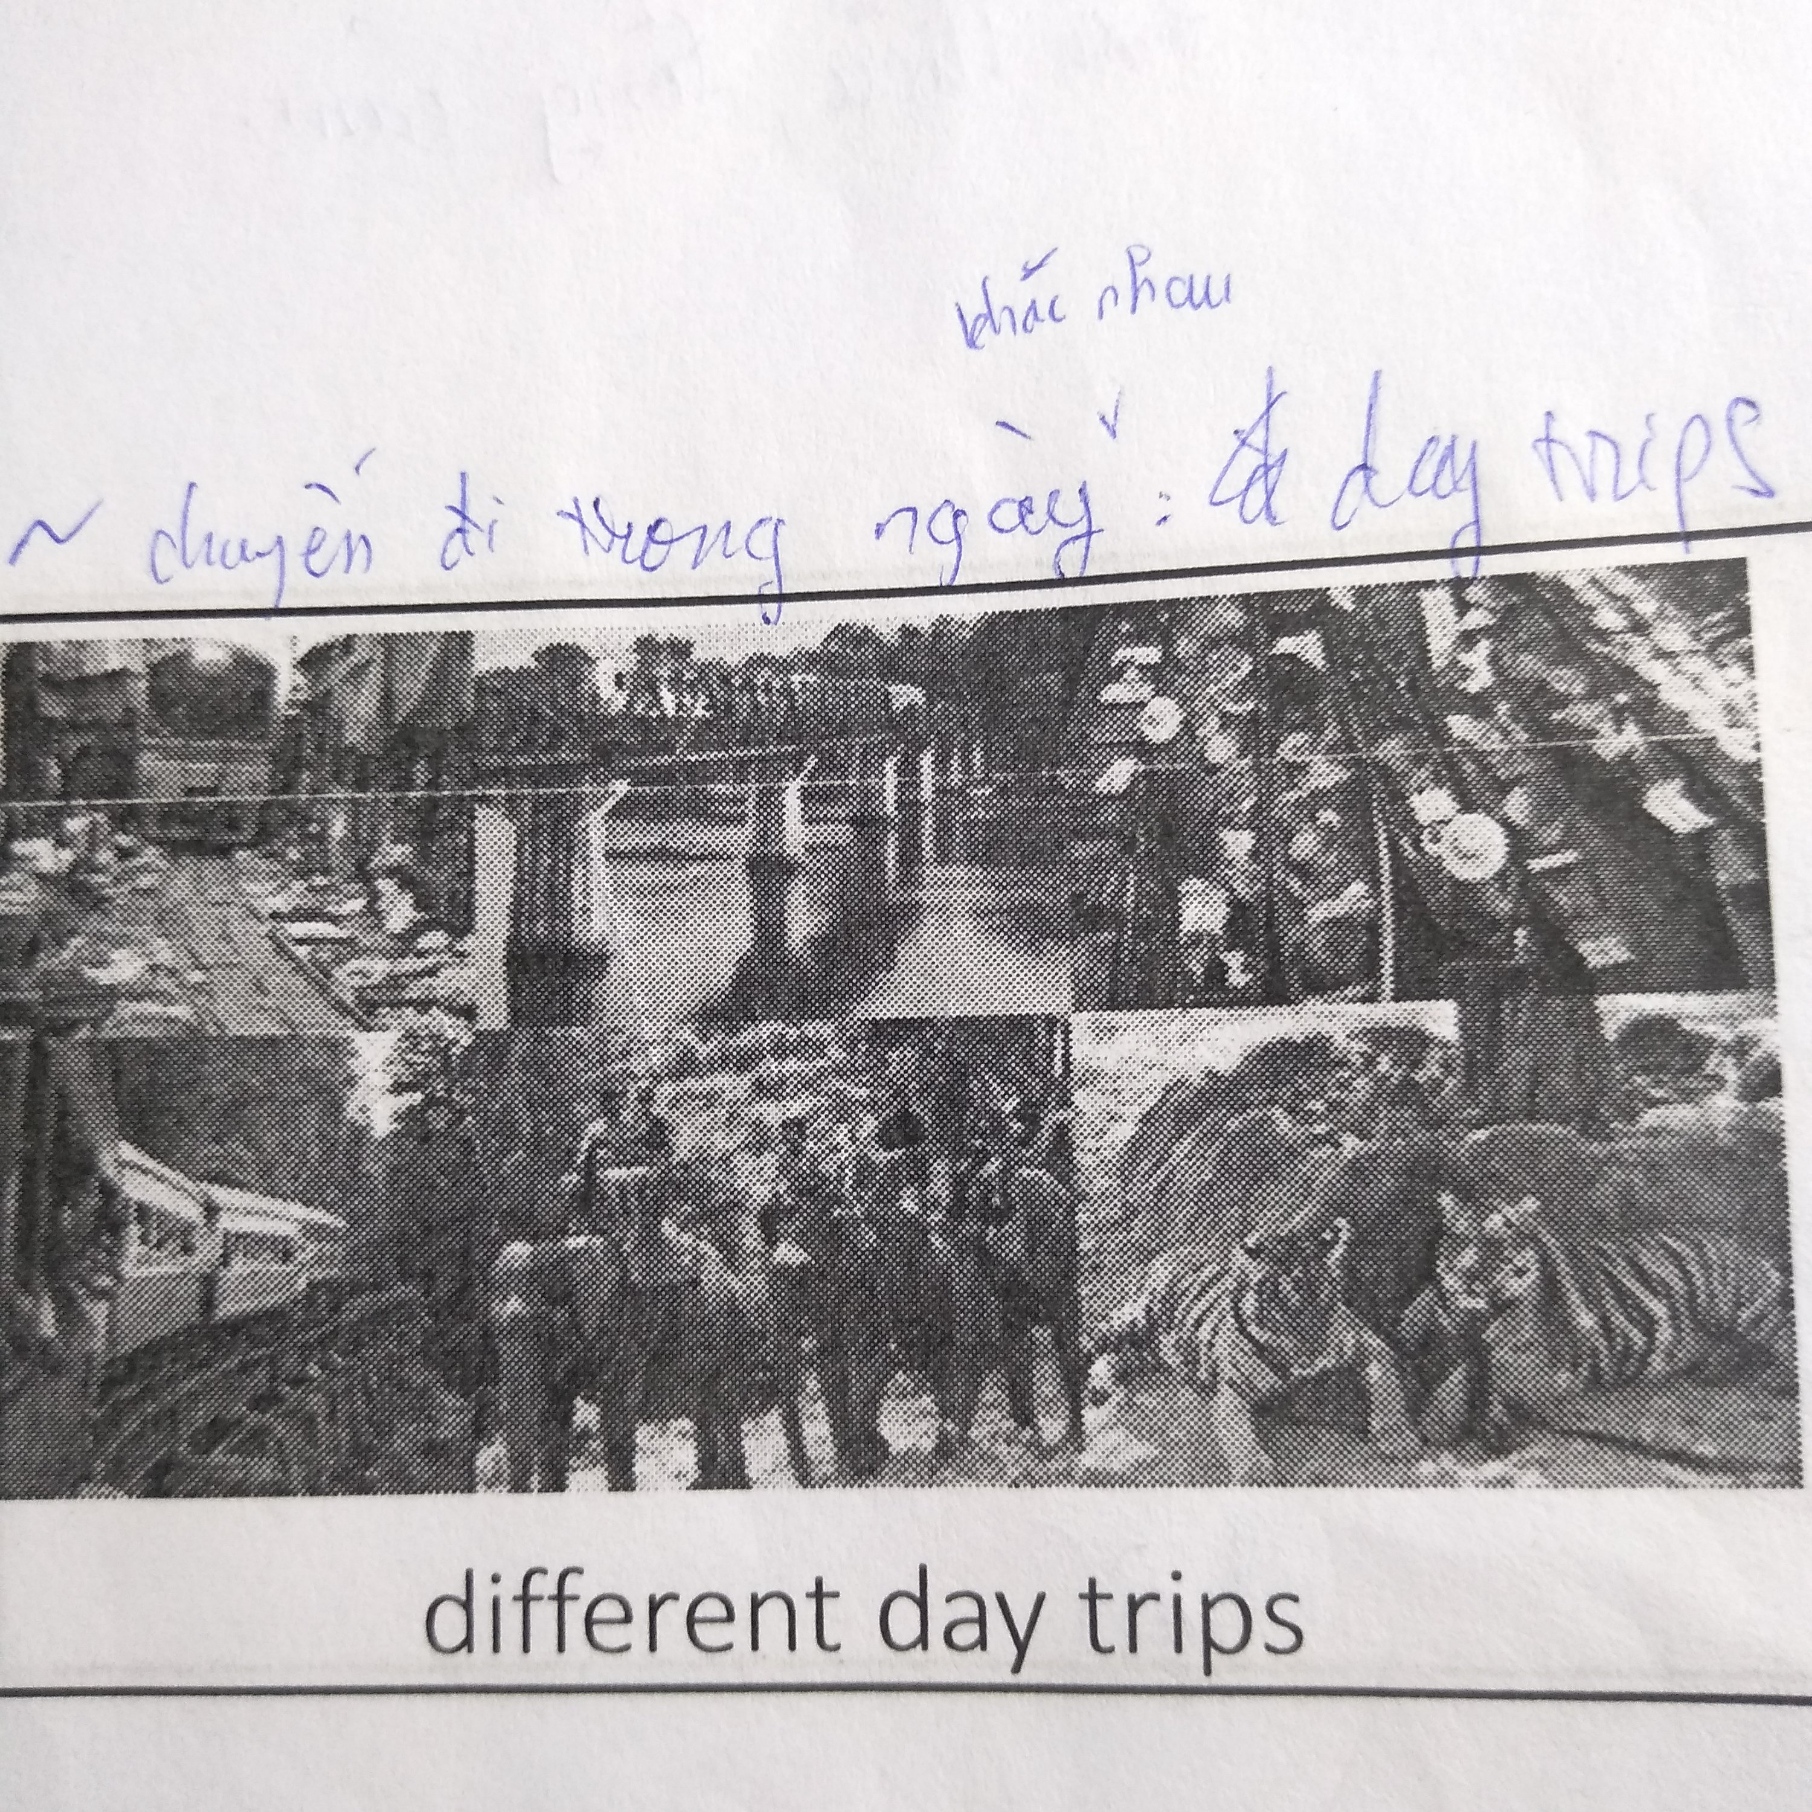 khác nhau
~ chuyến đi trong ngày : day trips
different day trips